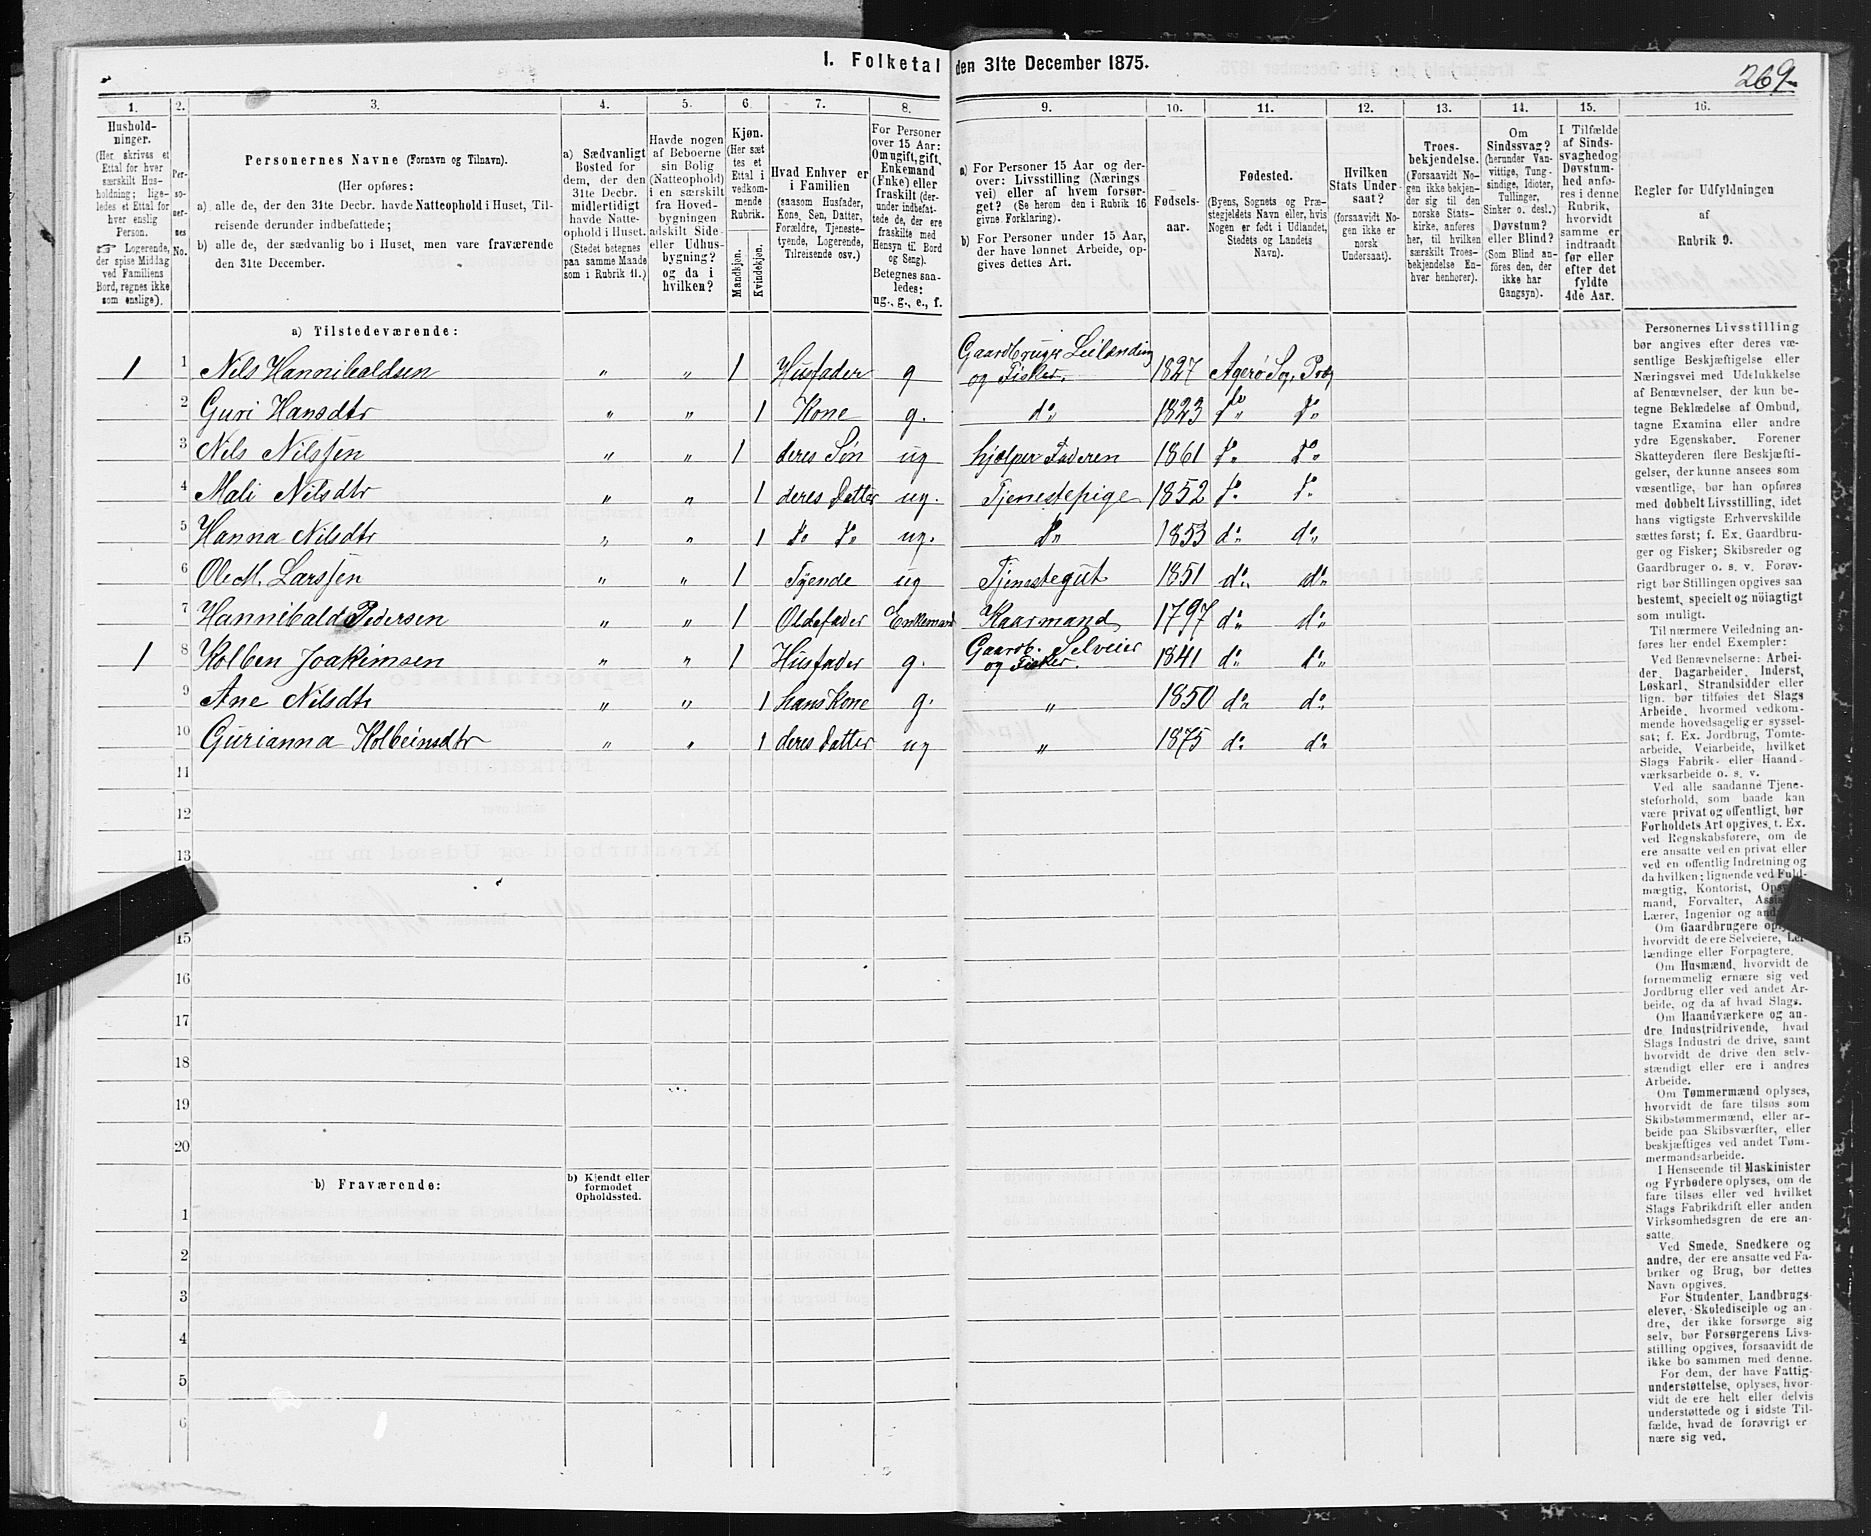 I. Folketal den 31te December 1875.
269.
1. 2. 3. 4. 5. 6. 7. 8. 9. 10. 11. 12. 13. 14. 15. 16.
Hushold-
ninger.
(Her skrives et
Ettal for hver
særskilt Hus-
holdning; lige-
ledes et Ettal for
hver enslig
Person.
☞ Logerende,
der spise Middag
ved Familiens
Bord, regnes ikke
som enslige).
Per-
so-
ner-
nes
No.
Personernes Navne (Fornavn og Tilnavn).
(Her opføres:
a) alle de, der den 31te Decbr. havde Natteophold i Huset, Til-
reisende derunder indbefattede;
b) alle de, der sædvanlig bo i Huset, men vare fraværende
den 31te December.
a) Sædvanligt
Bosted for
dem, der den
31te Decbr.
midlertidigt
havde Natte-
ophold i Huset.
(Stedet betegnes
paa samme Maade
som i Rubrik 11.)
Havde nogen
af Beboerne
sin Bolig
(Natteophold)
i en særskilt
fra Hoved-
bygningen
adskilt Side-
eller Udhus-
bygning?
og da i
hvilken?
Kjøn.
(Her sæt
tes et
Ettal i
vedkom-
mende
Rubrik.
Mandkjøn.
Kvindekjøn.
Hvad Enhver er
i Familien
(saasom Husfader,
Kone, Søn, Datter,
Forældre, Tjeneste-
tyende, Logerende,
Tilreisende osv.)
For Personer
over 15 Aar:
Om ugift, gift,
Enkemand
(Enke) eller
fraskilt (der-
under indbefat-
tede de, der ere
fraskilte med
Hensyn til Bord
og Seng).
Betegnes saa-
ledes:
ug., g., e., f.
a) For Personer 15 Aar og der-
over: Livsstilling (Nærings
vei) eller af hvem forsør-
get? (Se herom den i Rubrik 16
givne Forklaring).
b) For Personer under 15 Aar,
der have lønnet Arbeide, op-
gives dettes Art.
Fødsels-
aar.
Fødested.
(Byens, Sognets og Præ-
stegjeldets Navn eller, hvis
Nogen er født i Udlandet,
Stedets og Landets
Navn).
Hvilken
Stats Under-
saat?
(forsaavidt No-
gen ikke er
norsk
Undersaat).
Troes-
bekjendelse.
(Forsaavidt No-
gen ikke bekjen-
der sig til den
norske Stats-
kirke, anføres
her, til hvilken
særskilt Troes-
bekjendelse En-
hver henhører).
Om
Sindssvag?
(herunder Van-
vittige, Tung-
sindige, Idioter,
Tullinger,
Sinker o. desl.)
Døvstum?
eller Blind?
(Som Blind an-
føres den, der
ikke har
Gangsyn).
I Tilfælde
af Sinds-
svaghed og
Døvstum-
hed anfø-
res i denne
Rubrik,
hvorvidt
samme er
indtraadt
før eller
efter det
fyldte
4de Aar.
Regler for Udfyldningen
af
Rubrik 9.
a) Tilstedeværende:
1 1 Nils Hannibaldsen „ „ 1 Husfader g Gaardbruger Leilænding og Fisker. 1827 Agerø Sg. Præg
2 Guri Hansdtr „ „ 1 Kone g. do 1823 do do
3 Nils Nilssen „ „ 1 deres Søn ug hjælper Faderen 1861 do do
4 Mali Nilsdtr „ „ 1 deres Datter ug. Tjenestepige 1852 do do
5 Hanna Nilsdtr „ „ 1 do do ug. do 1853 do do
6 Ole M. Larssen „ „ 1 Tyende ug Tjenestegut 1851 do do
7 Hannibald Pedersen „ „ 1 Oldefader Enkemand Kaarmand 1797 do do
1 8 Kolben Joakimsen „ „ 1 Husfader g. Gaardb. Selveier og Fisker. 1841 do do
9 Ane Nilsdtr „ „ 1 hans Kone g. „ 1850 do do
10 Gurianna Kolbeinsdtr „ „ 1 deres Datter ug „ 1875 do do
11
12
13
15
16
17
18
19
20
b) Fraværende:
b) Kjendt eller
formodet
Opholdssted.
1
2
3
4
5
6
Personernes Livsstilling
bør angives efter deres væ-
sentlige Beskjæftigelse eller
Næringsvei med Udelukkelse
af Benævnelser, der kun be-
tegne Beklædelse af Ombud,
tagne Examina eller andre
ydre Egenskaber. Forener
Skatteyderen flere Beskjæfti-
gelser, der kunne ansees som
væsentlige, bør han opføres
med dobbelt Livsstilling, idet
hans vigtigste Erhvervskilde
sættes først; f. Ex. Gaardbru-
ger og Fisker; Skibsreder og
Gaardbruger o. s. v. Forøv-
rigt bør Stillingen opgives saa
bestemt, specielt og nöiagtigt
som muligt.
Til nærmere Veiledning an-
føres her endel Exempler:
Ved Benævnelserne: Arbei-
der, Dagarbeider, Inderst,
Løskarl, Strandsidder eller
lign. bør tilføies det Slags
Arbeide, hvormed vedkom-
mende hovedsagelig er syssel-
sat; f. Ex. Jordbrug, Tomte-
arbeide, Veiarbeide, hvilket
Slags Fabrik- eller Haand-
værksarbeide o. s. v.
Ved alle saadanne Tjene-
steforhold, som baade kan
være privat og offentligt, bør
Forholdets Art opgives, t. Ex.
ved Regnskabsførere, om de
ere ansatte ved en privat eller
ved en offentlig Indretning og
da hvilken; lignende ved Fuld-
mægtig, Kontorist, Opsy
mand, Forvalter, Assi
Lærer, Ingeniør og and
Om Gaardbrugere oply
hvorvidt de ere Selveiere, Lei
lændinge eller Forpagtere.
Om Husmænd, hvorvidt de
fornemmelig ernære sig ved
Jordbrug eller ved andet Ar-
beide, og da af hvad Slags.
Om Haandværkere og an-
dre Industridrivende, hvad
Slags Industri de drive, samt
hvorvidt de drive den selv-
stændigt eller ere i andres
Arbeide.
Om Tømmermænd oplyses,
hvorvidt de fare tilsøs som
Skibstømmermænd, eller ar-
beide paa Skibsværfter, eller
beskjæftiges ved andet Tøm-
mermandsarbeide.
I Henseende til Maskinister
og Fyrbødere oplyses, om de
fare tilsøs eller ved hvilket
Slags Fabrikdrift eller anden
Virksomhedsgren de ere an-
satte.
Ved Smede, Snedkere og
andre, der ere ansatte ved Fa-
briker og Brug, bør dettes
Navn opgives.
For Studenter, Landbrugs-
elever, Skoledisciple og an-
dre, der ikke forsørge sig
selv, bør Forsørgerens Livs-
stilling opgives, forsaavidt de
ikke bo sammen med denne.
For dem, der have Fattig-
understøttelse, oplyses, hvor-
vidt de ere helt eller delvis
understøttede og i sidste Til-
fælde, hvad de forøvrigt er
nære sig ved.